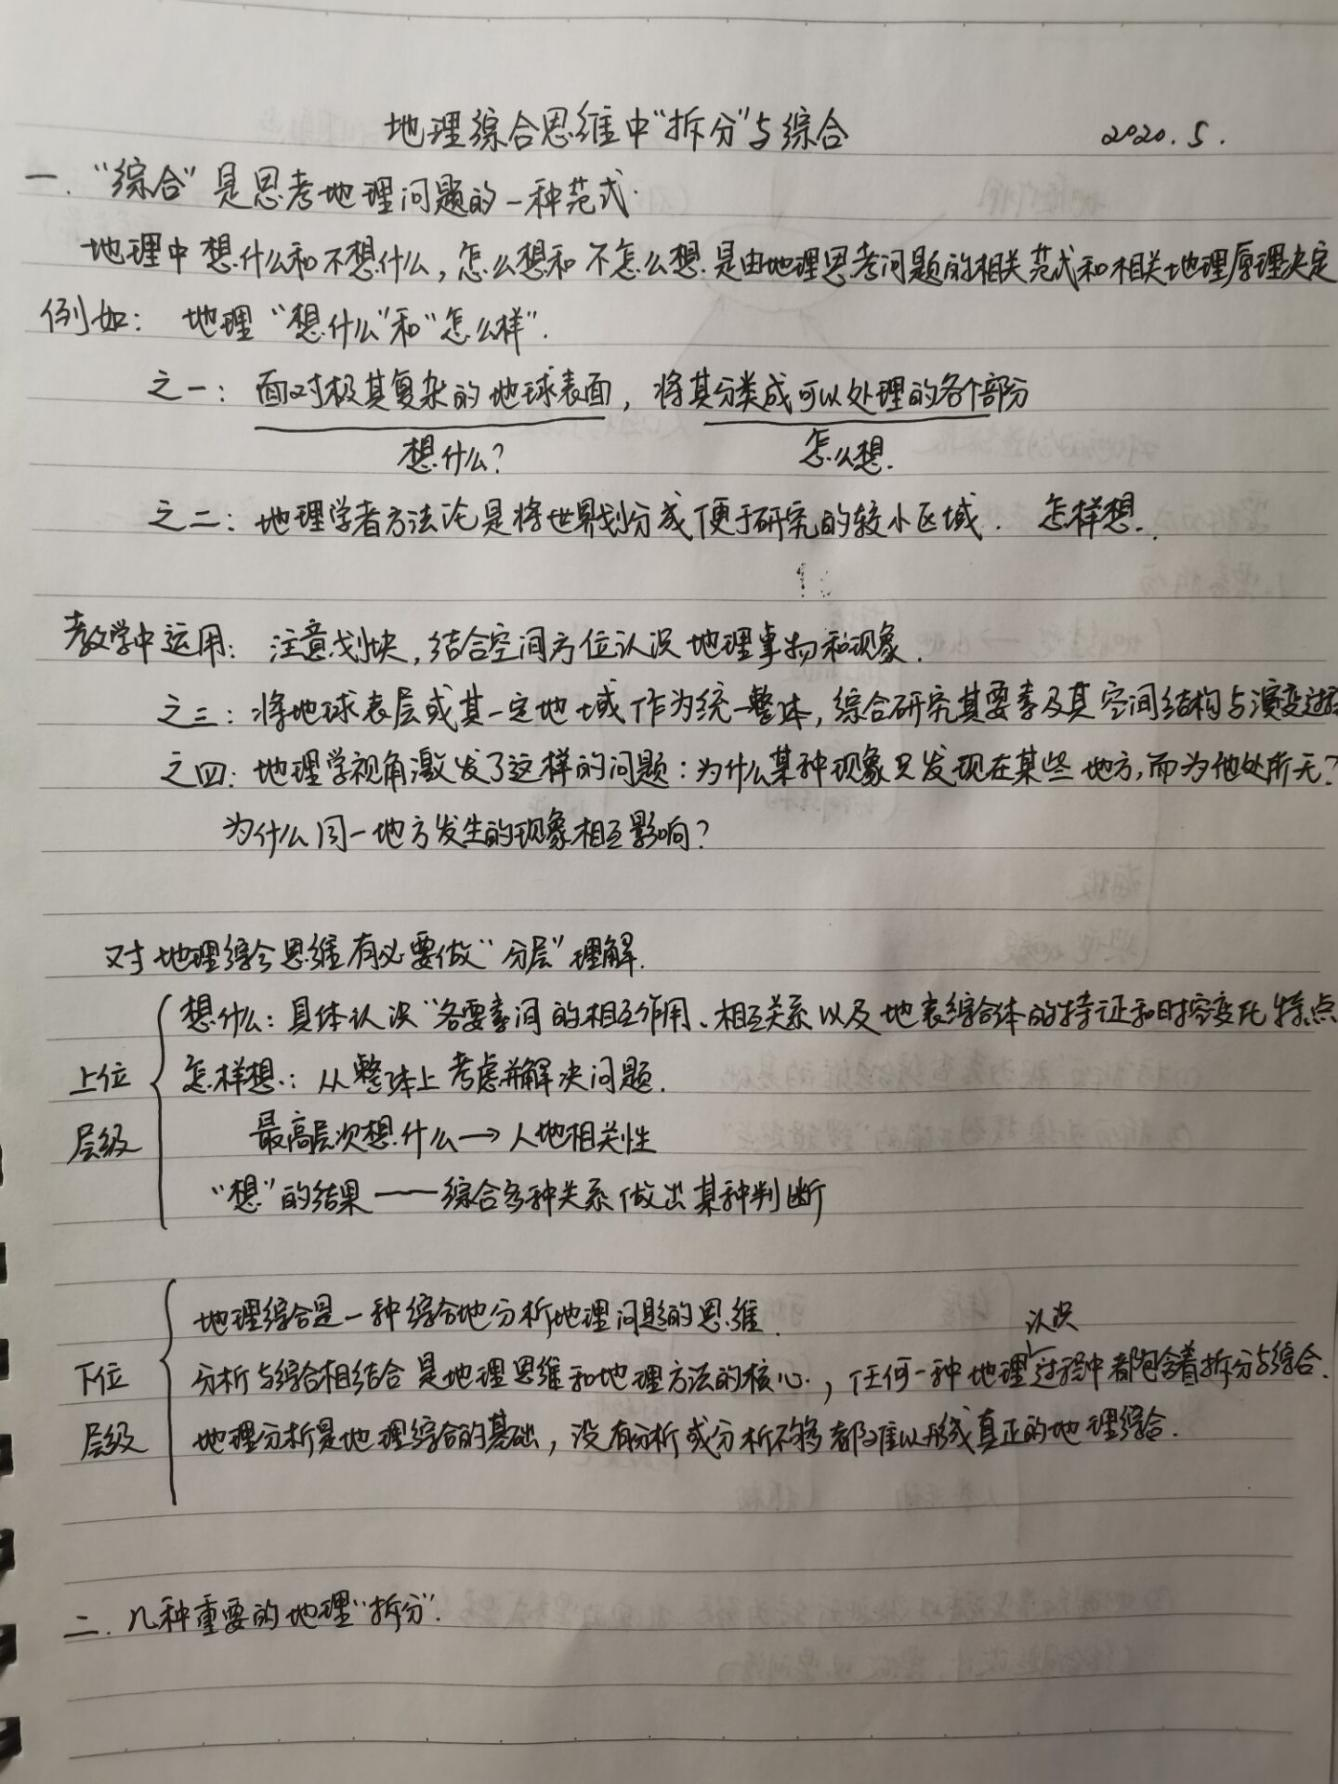 地理综合思维中“拆分”与综合 2020.5.
一.“综合”是思考地理问题的一种范式.
地理中想什么和不想什么，怎么想和不怎么想.是由地理思考问题的相关范式和相关地理原理决定
例如： 地理“想什么”和“怎么样”.
之一：面对极其复杂的地球表面，将其分类成可以处理的各个部分
想什么？ 怎么想.
之二：地理学者方法论是将世界划分成便于研究的较小区域. 怎样想.
教学中运用： 注意划块，结合空间方位认识地理事物和现象.
之三：将地球表层或其一定地域作为统一整体，综合研究其要素及其空间结构与演变过程
之四：地理学视角激发了这样的问题：为什么某种现象只发现在某些地方，而为他处所无？
为什么同一地方发生的现象相互影响？
对地理综合思维有必要做“分层”理解.
想什么：具体认识“各要素间的相互作用、相互关系以及地表综合体的特证和时空变化特点
上位 怎样想：从整体上考虑并解决问题.
层级 最高层次想什么→人地相关性
“想”的结果——综合多种关系做出某种判断
地理综合是一种综合地分析地理问题的思维.
认识
下位 分析与综合相结合是地理思维和地理方法的核心.，任何一种地理过程中都包含着拆分与综合.
层级 地理分析是地理综合的基础，没有分析或分析不够都难以形成真正的地理综合.
二.几种重要的地理“拆分”.